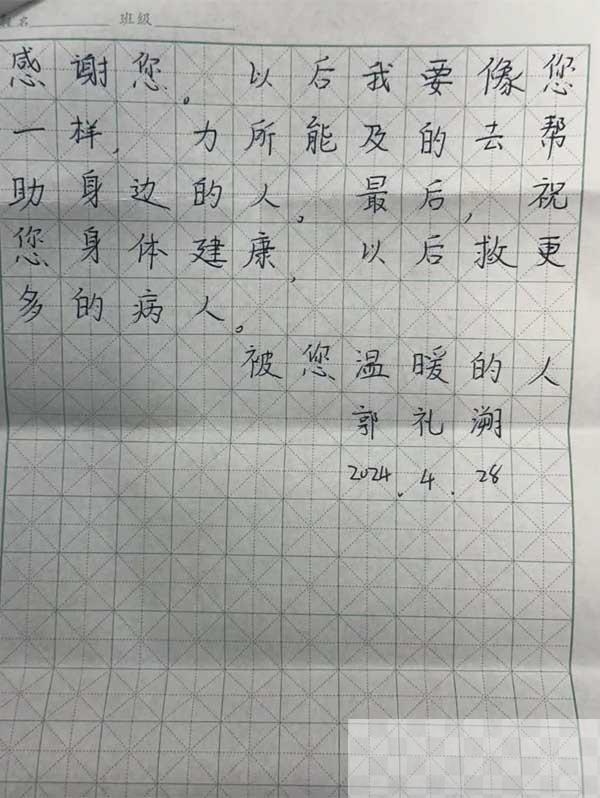 姓名 班级
感谢您。以后我要像您
一样，力所能及的去帮
助身边的人。最后，祝
您身体建康，以后救更
多的病人。
被您温暖的人
郭礼溯
2024.4.28